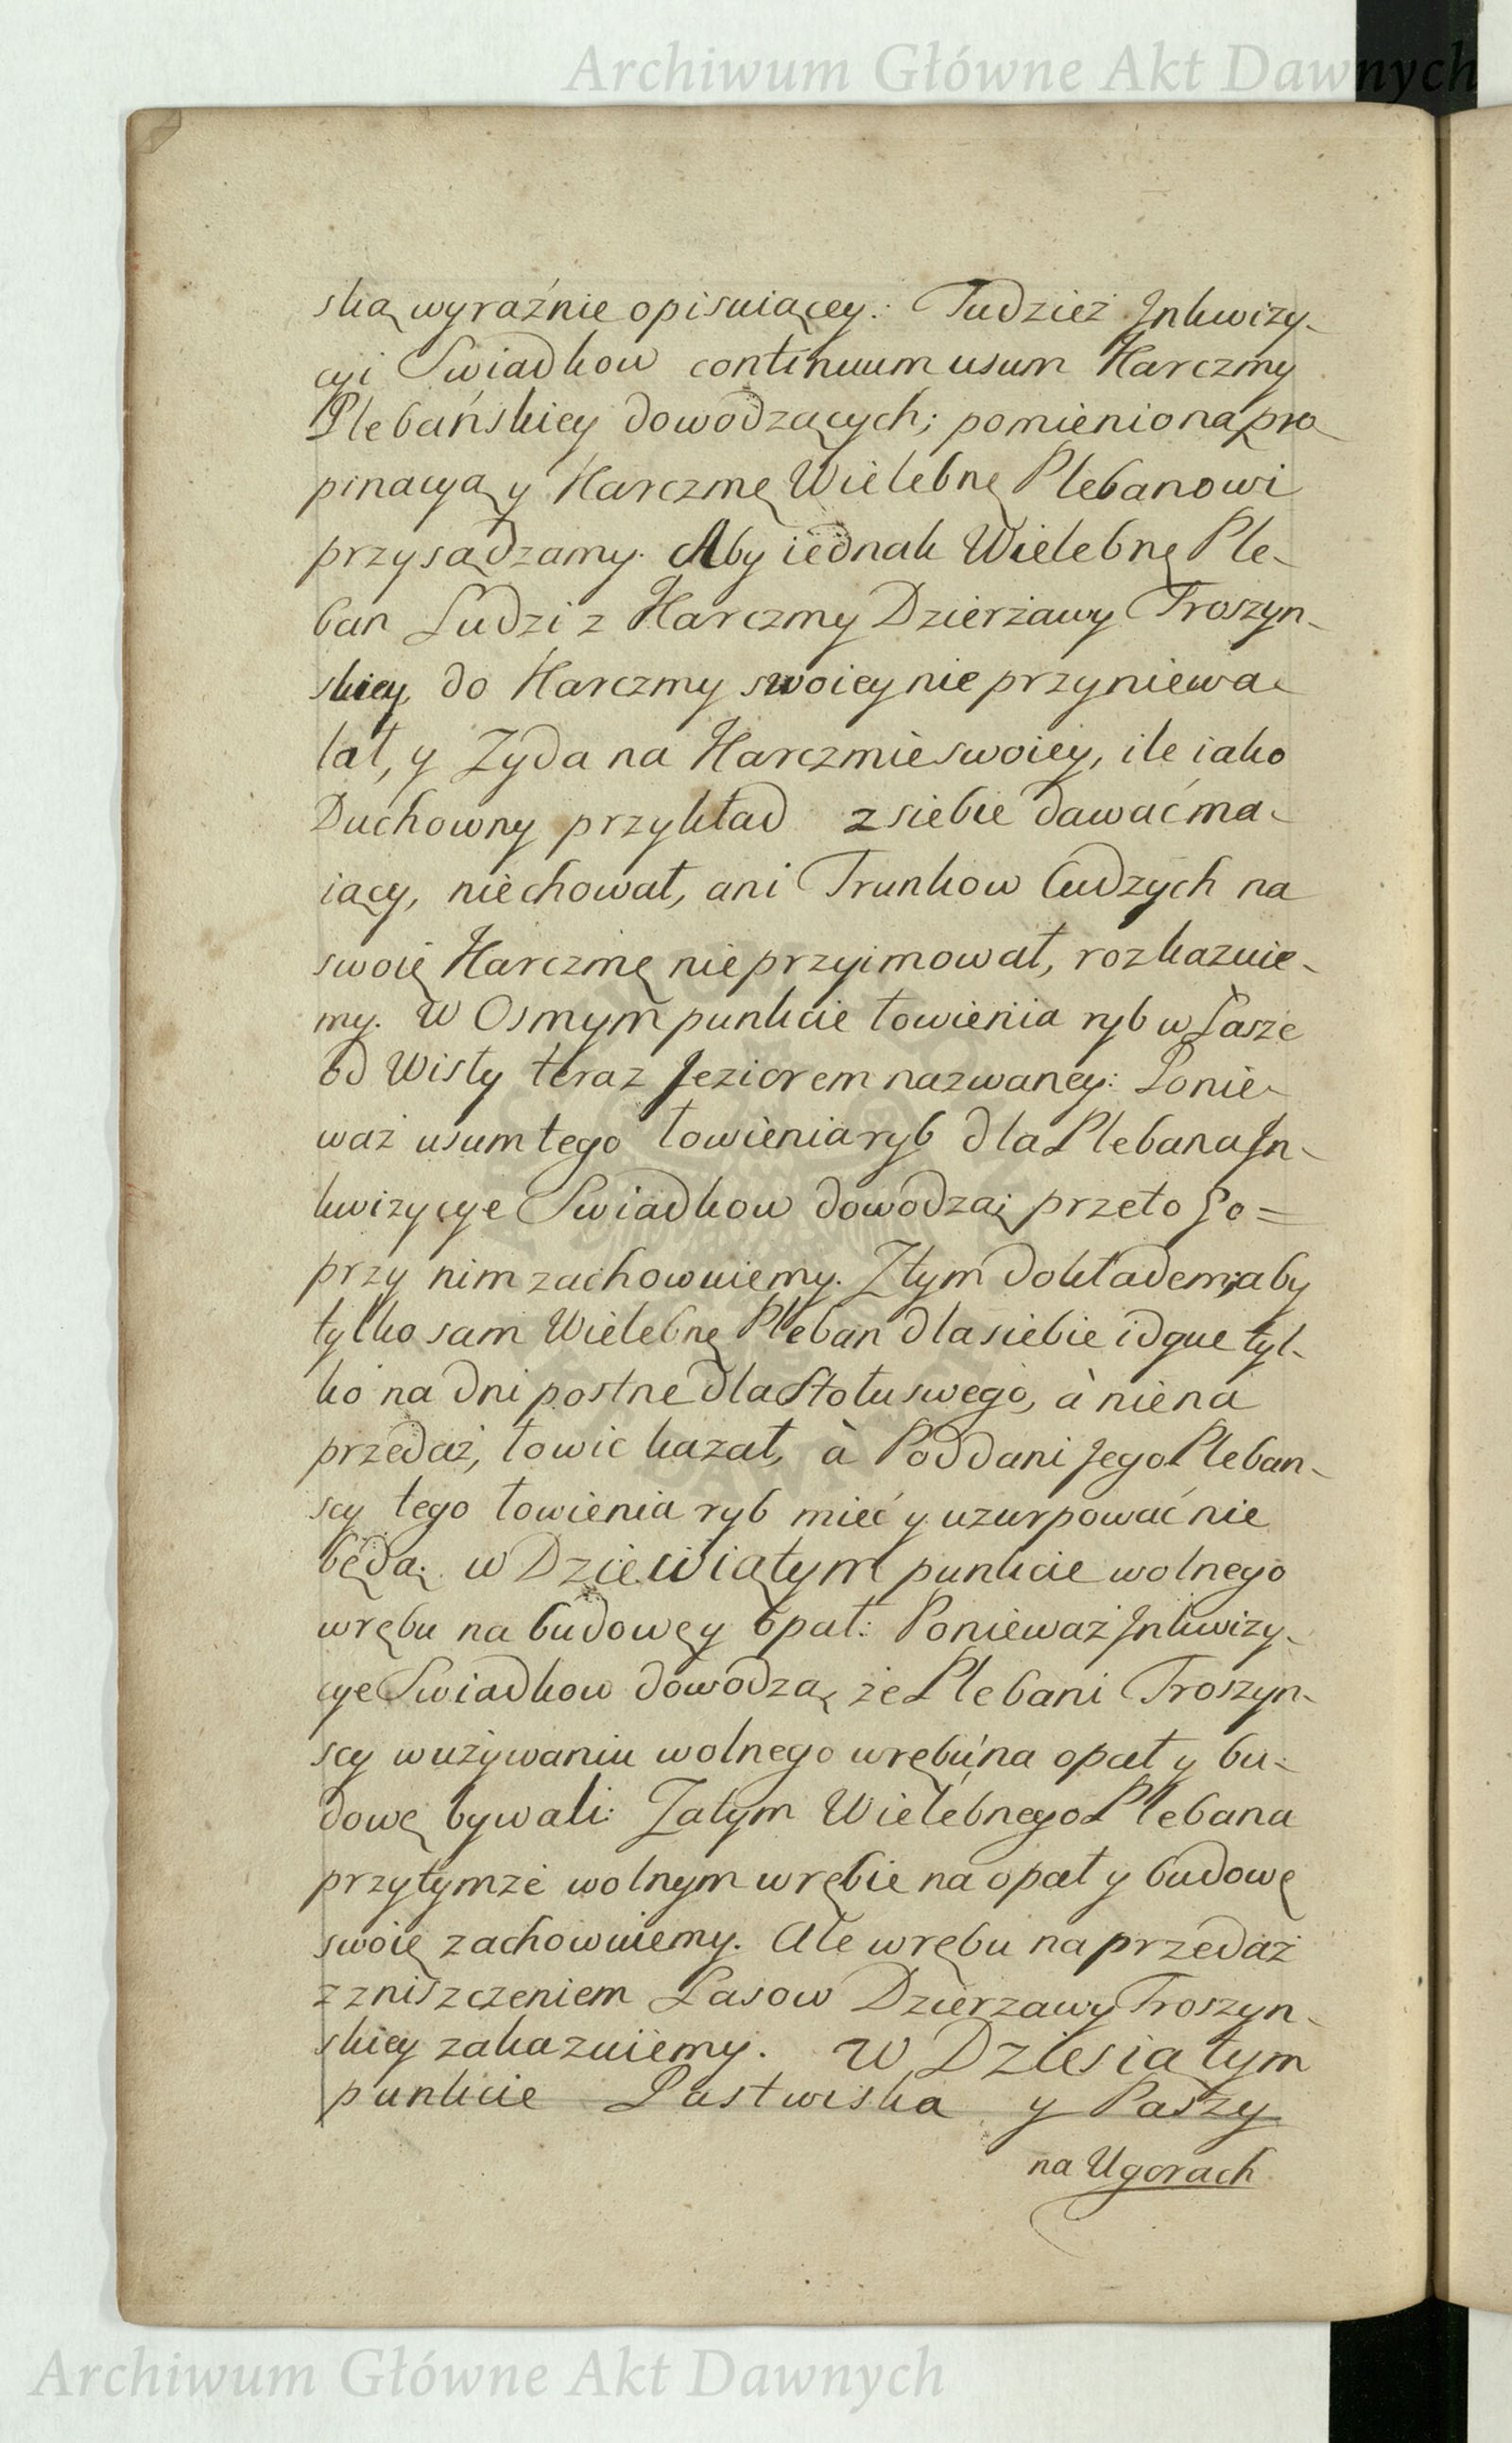 Archiwum Główne Akt Dawnych
ską wyraźnie opisuiącey: Tudzież Inkwizy-
cyi Swiadkow continuum usum Karczmy
Plebańskiey dowodzących; pomienioną pro-
pinacyą y Karczmę Wielebnę Plebanowi
przysądzamy. Aby iednak Wielebnę Ple-
ban Ludzi z Karczmy Dzierżawy Troszyn-
skiey do Karczmy swoiey nie przyniewa-
lał, y Zyda na Karczmie swoiey, ile iako
Duchowny przykład z siebie dawać ma-
iący, nie chował, ani Trunkow Cudzych na
swoię Karczmę nie przyimował, rozkazuie-
my. W Osmym punkcie łowienia ryb w Łasze
od Wisły teraz Jeziorem nazwaney: Ponie-
waż usum tego łowienia ryb dla Plebana In-
kwizycye Swiadkow dowodzą; przeto Go=
przy nim zachowuiemy. Z tym dokładem, aby
tylko sam Wielebnę Pleban dla siebie idque tyl-
ko na dni postne dla Stołu swego, à nie na
przedaż, łowic kazał, à Poddani Jego Pleban-
scy tego łowienia ryb mieć y uzurpować nie
będą. w Dziewiątym punkcie wolnego
wrębu na budowę y opał: Ponieważ Inkwizy-
cye Swiadkow dowodzą, że Plebani Troszyn-
scy w używaniu wolnego wrębu na opał y bu-
dowę bywali: Zatym Wielebnego Plebana
przy tymże wolnym wrębie na opał y budowę
swoię zachowuiemy. Ale wrębu na przedaż
z zniszczeniem Lasow Dzierzawy Troszyn-
skiey zakazuiemy. W Dziesiątym
punkcie Pastwiska y Paszy
na Ugorach
Archiwum Główne Akt Dawnych